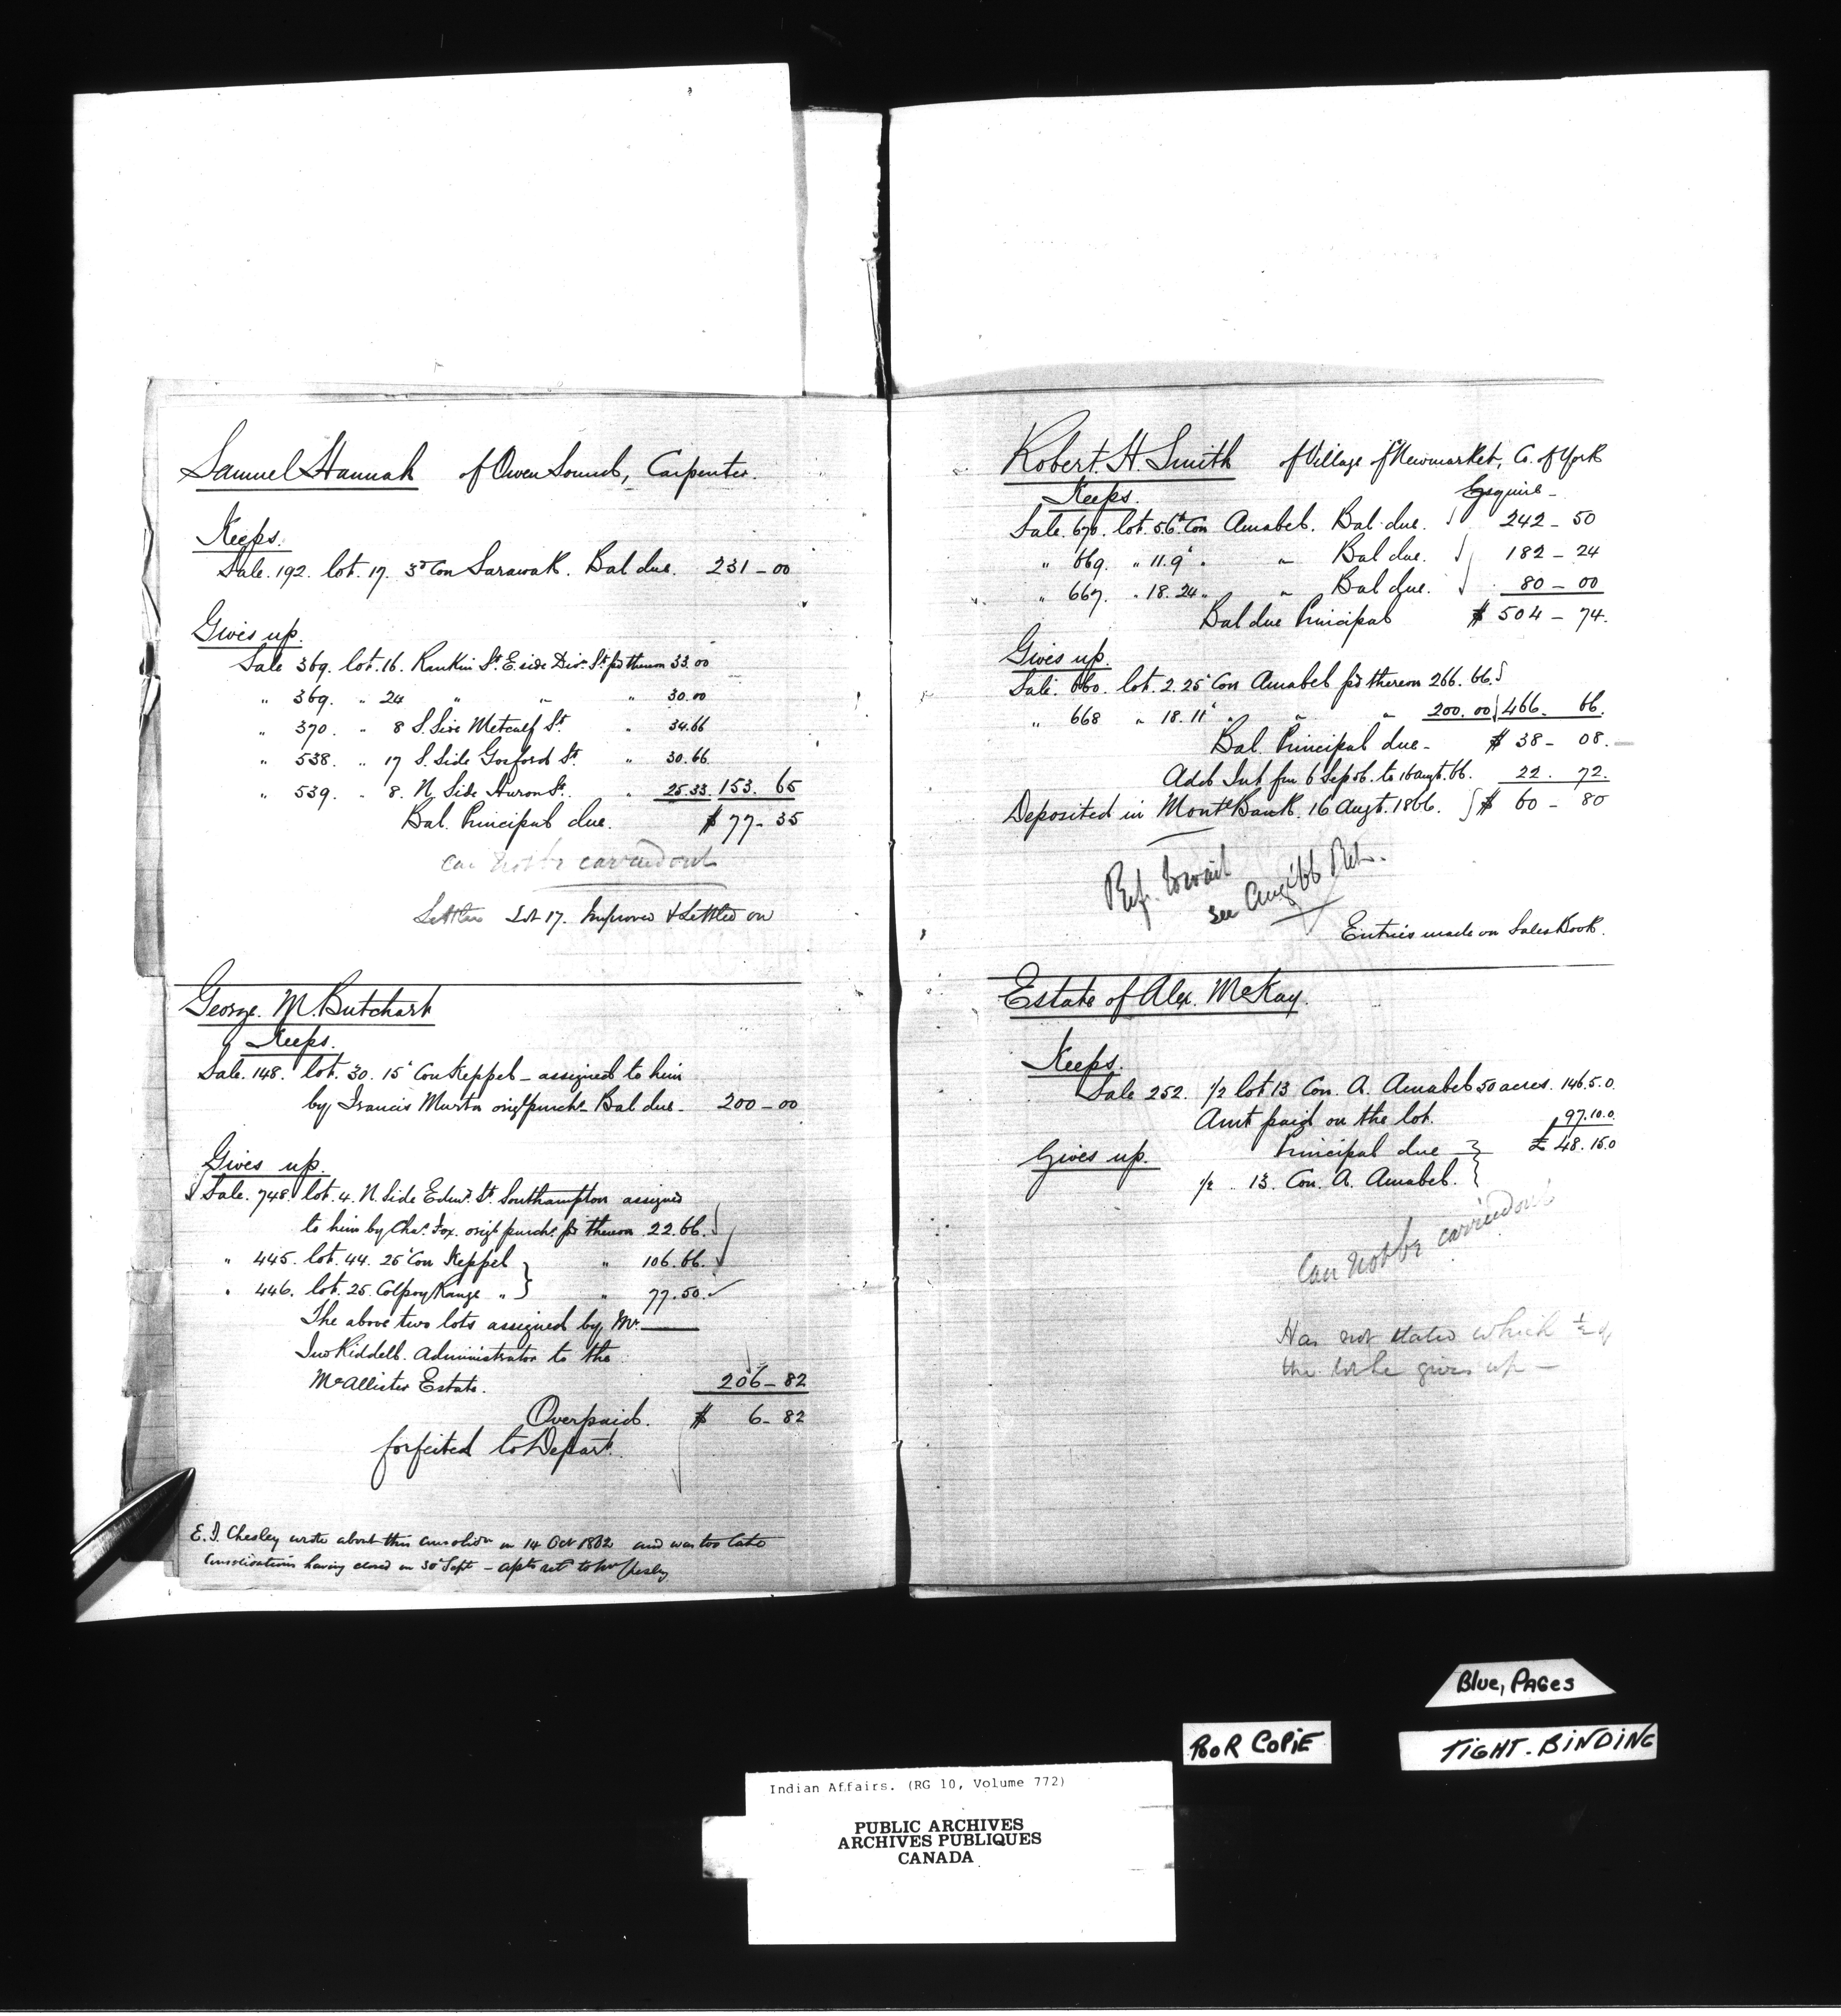 Samuel Hannah of Owen Sound, Carpenter.
Keeps.
Sale. 192. lot. 17. 3d Con Sarawak. Bal due. 231 - 00
Gives up.
Sale 369. lot. 16. Rankin St. E side Divn. St. pd thereon 33.00
" 369. " 24 " " " 30.00
" 370. " 8 S. Side Metcalf St. " 34.66
" 538. " 17 S. Side Gosford St. " 30.66
" 539. " 8. N. Side Huron St. " 25.33. 153. 65
Bal. Principal due. $ 77 - 35
Can not be carried out
Settler Lot 17. Improved & Settled on
George. M. Butchart
Keeps.
Sale. 148. lot. 30. 15' Con Keppel - assigned to him
by Francis Murta origl purchr. Bal due - 200 - 00
Gives up.
Sale. 748. lot. 4. N. Side Edwd. St. Southampton assigned
to him by Chas. Fox. origl purchr. pd thereon 22.66.
" 445. lot. 44. 25' Con Keppel } " 106.66.
" 446. lot. 25. Colpoy Range " } " 77.50.
The above two lots assigned by Mr.
Jno Riddell. Administrator to the
McAllister Estate. 206 - 82
Overpaid. $ 6 - 82
forfeited to Depart.
E. I. Chesley wrote about this consolidn on 14 Oct 1862 and was too late
Consolidations having closed on 30' Sept - to Mr Chesley
Robert. H. Smith of Village of Newmarket, Co. of York
Esquire -
Keeps.
Sale. 670. lot. 5 6th Con Amabel. Bal. due. 242 - 50
" 669. " 11. 9' " " Bal due. 182 - 24
" 667. " 18. 24 " " Bal due. 80 - 00
Bal due Principal $ 504 - 74.
Gives up.
Sale. 660. lot. 2. 25' Con Amabel pd thereon 266. 66.
" 668 " 18. 11' " " " 200. 00 466. 66.
Bal. Principal due - $ 38 - 08.
Add Int frm 6 Sep 56. to 16 Augt. 66. 22. 72.
Deposited in Montl Bank. 16 Augt. 1866. $ 60 - 80
see Aug '66 Ret.
Entries made on Sales Book.
Estate of Alex. McKay.
Keeps.
Sale 252. 1/2 lot 13 Con. A. Amabel 50 acres. 146.5.0.
Amt paid on the lot. 97.10.0.
Gives up. Principal due £ 48.15.0
1/2 " 13. Con. A. Amabel.
Can not be carried out
Has not stated which 1/2 of
the lot he gives up -
Blue, PAGes
POOR COPIE
TIGHT-BINDING
Indian Affairs. (RG 10, Volume 772)
PUBLIC ARCHIVES
ARCHIVES PUBLIQUES
CANADA